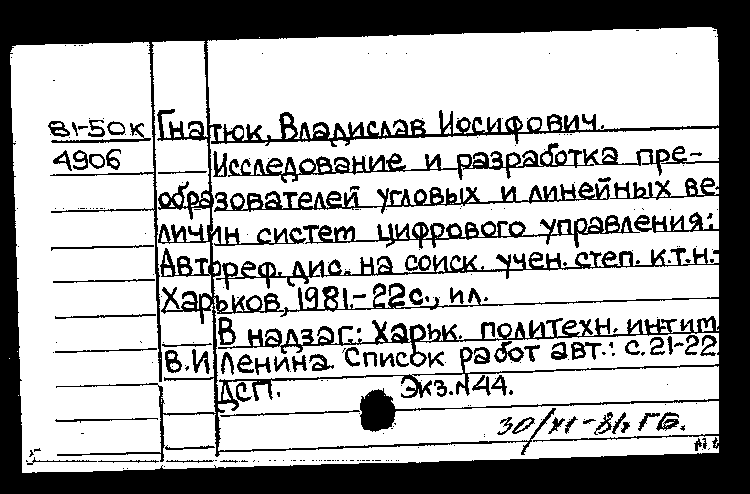 81-50к Гнатюк, Владислав Иосифович.
4906 Исследование и разработка пре-
образователей угловых и линейных ве-
личин систем цифрового управления:
Автореф. дис. на соиск. учен. степ. к.т.н.-
Харьков, 1981.-22с., ил.
В надзаг.: Харьк. политехн. ин-т им.
В.И Ленина. Список работ авт.: с.21-22.
ДСП. Экз.N44.
30/XI-81г ГБ.
5